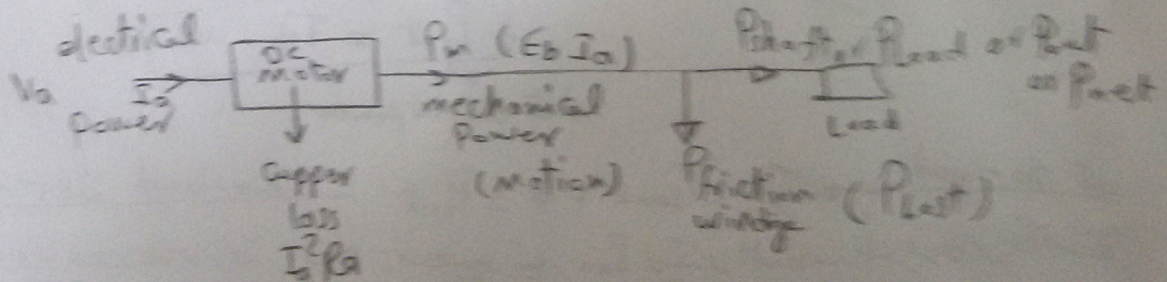 electrical
Va Ia
Power
DC
motor
Copper
loss
Ia²Ra
Pm (Eb Ia)
mechanical
Power
(motion)
Pfriction
windge (PLost)
Pshaft or PLoad or Pout
or Pnett
Load